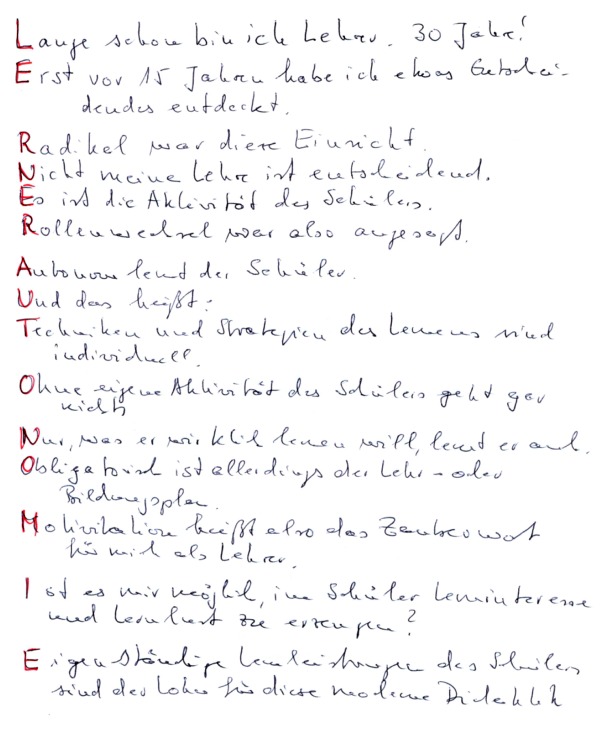 Lange schon bin ich Lehrer. 30 Jahre!
Erst vor 15 Jahren habe ich etwas Entschei-
dendes entdeckt.
Radikal war diese Einsicht.
Nicht meine Lehre ist entscheidend.
Es ist die Aktivität des Schülers.
Rollenwechsel war also angesagt.
Autonom lernt der Schüler.
Und das heißt:
Techniken und Strategien des Lernens sind
individuell.
Ohne eigene Aktivität des Schülers geht gar
nichts
Nur, was er wirklich lernen will, lernt er auch.
Obligatorisch ist allerdings der Lehr- oder
Bildungsplan.
Motivation heißt also das Zauberwort
für mich als Lehrer.
Ist es mir möglich, im Schüler Lerninteresse
und Lernlust zu erzeugen?
Eigenständige Lernleistungen des Schülers
sind der Lohn für diese moderne Didaktik